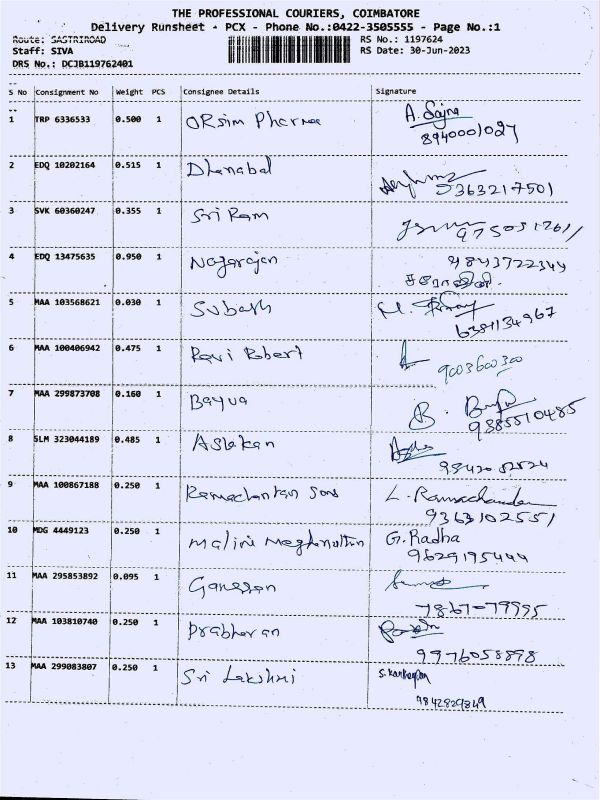 THE PROFESSIONAL COURIERS, COIMBATORE
Delivery Runsheet - PCX - Phone No.:0422-3505555 - Page No.:1
Route: SASTRIROAD RS No.: 1197624
Staff: SIVA RS Date: 30-Jun-2023
DRS No.: DCJB119762401
S No Consignment No Weight PCS Consignee Details Signature
1 TRP 6336533 0.500 1 ORsim Pharma A. Sajna
8940001027
2 EDQ 10202164 0.515 1 Dhanabal
5363217501
3 SVK 60360247 0.355 1 Sri Ram
9750517611
4 EDQ 13475635 0.950 1 Nagarajan 9843722344
சரோஜினி
5 MAA 103568621 0.030 1 Subash
6381134967
6 MAA 100406942 0.475 1 Ravi Robert
9003600300
7 MAA 299873708 0.160 1 Bayua B.
9885510485
8 SLM 323044189 0.485 1 Aslekan
9842052524
9 MAA 100867188 0.250 1 Ramachantan Sons L. Ramachandran
9363102551
10 MDG 4449123 0.250 1 Malini Meghanathan G. Radha
9629195444
11 MAA 295853892 0.095 1 Ganesan
7867-79995
12 MAA 103810740 0.250 1 Prabharan
9976058898
13 MAA 299083807 0.250 1 Sri Lakshmi S. Kartheyan
9842829849